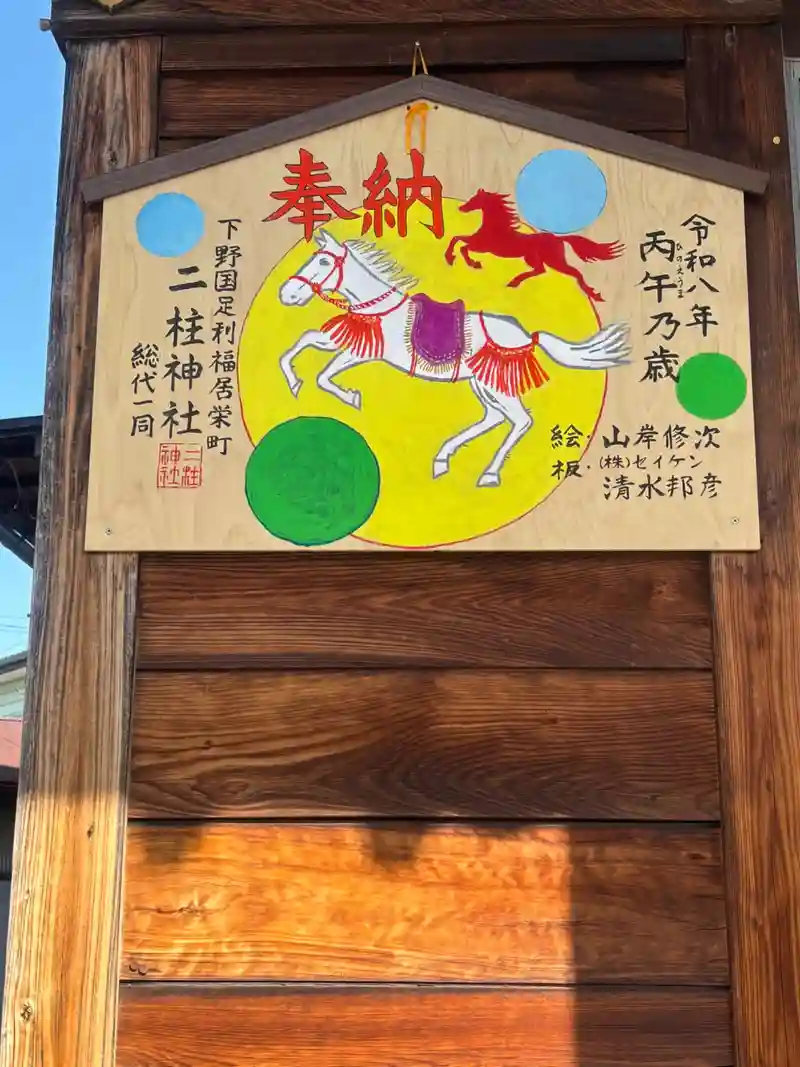 奉納
令和八年
丙午乃歳
ひのえうま
絵・山岸修次
板・(株)セイケン
清水邦彦
下野国足利福居栄町
二柱神社
総代一同
二柱神社